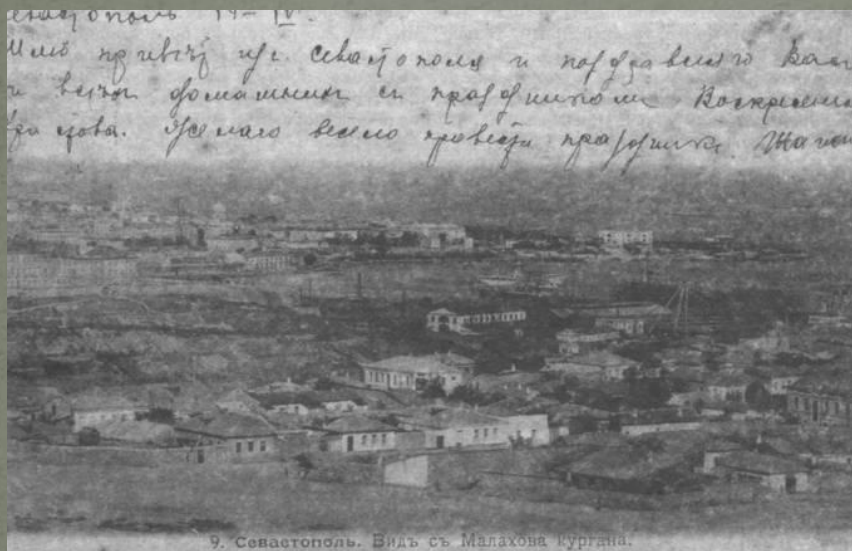 Севастополь 14-IV.
Шлю привѣт изъ Севастополя и поздравляю Вас
и всѣхъ домашнихъ съ праздникомъ Воскресенія
Христова. Желаю весело провести праздники.
9. Севастополь. Видъ съ Малахова кургана.